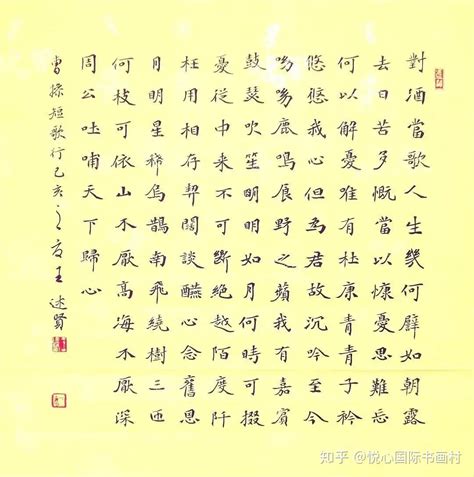 對酒當歌人生幾何譬如朝露
去日苦多慨當以慷憂思難忘
何以解憂唯有杜康青青子衿
悠悠我心但為君故沉吟至今
呦呦鹿鳴食野之蘋我有嘉賓
鼓瑟吹笙明明如月何時可掇
憂從中来不可斷絕越陌度阡
枉用相存契闊談醼心念舊恩
月明星稀烏鵲南飛繞樹三匝
何枝可依山不厭高海不厭深
周公吐哺天下歸心
曹操短歌行己亥之夏王述賢
知乎 @悦心国际书画村